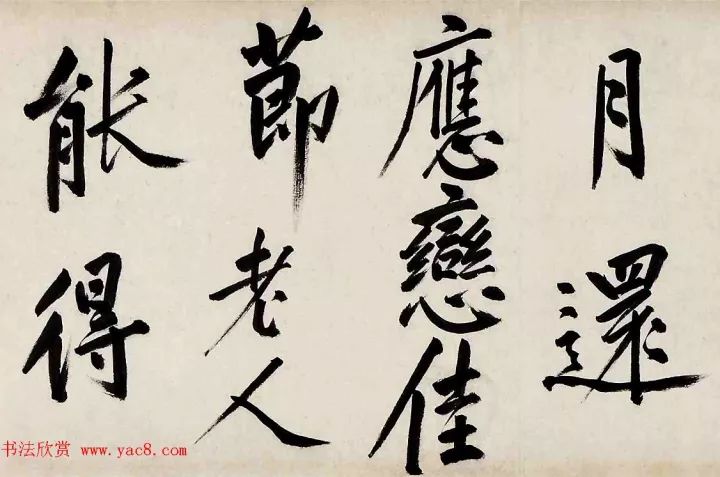 月還
應戀佳
節老人
能得
书法欣赏 www.yac8.com